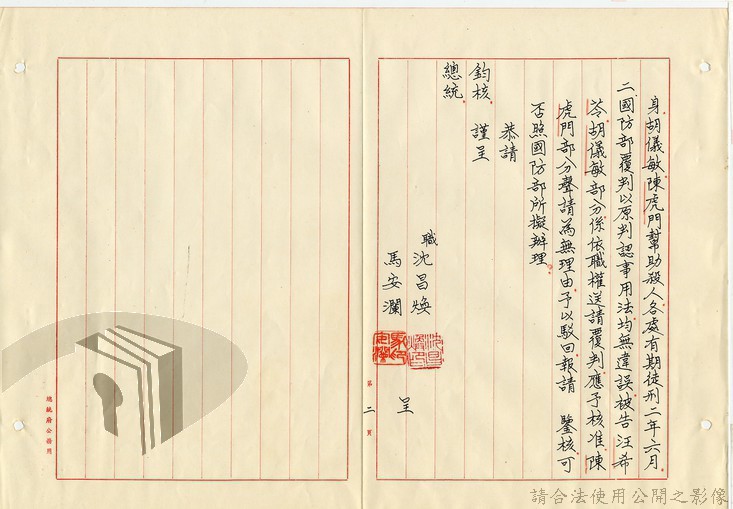 身胡儀敏陳虎門幫助殺人各處有期徒刑二年六月
二國防部覆判以原判認事用法均無違誤被告汪希
苓胡儀敏部分係依職權送請覆判應予核准陳
虎門部分聲請為無理由予以駁回報請 鑒核可
否照國防部所擬辦理
恭請
鈞核 謹呈
總統
職沈昌煥
馬安瀾
呈
第二頁
總統府公務用
請合法使用公開之影像